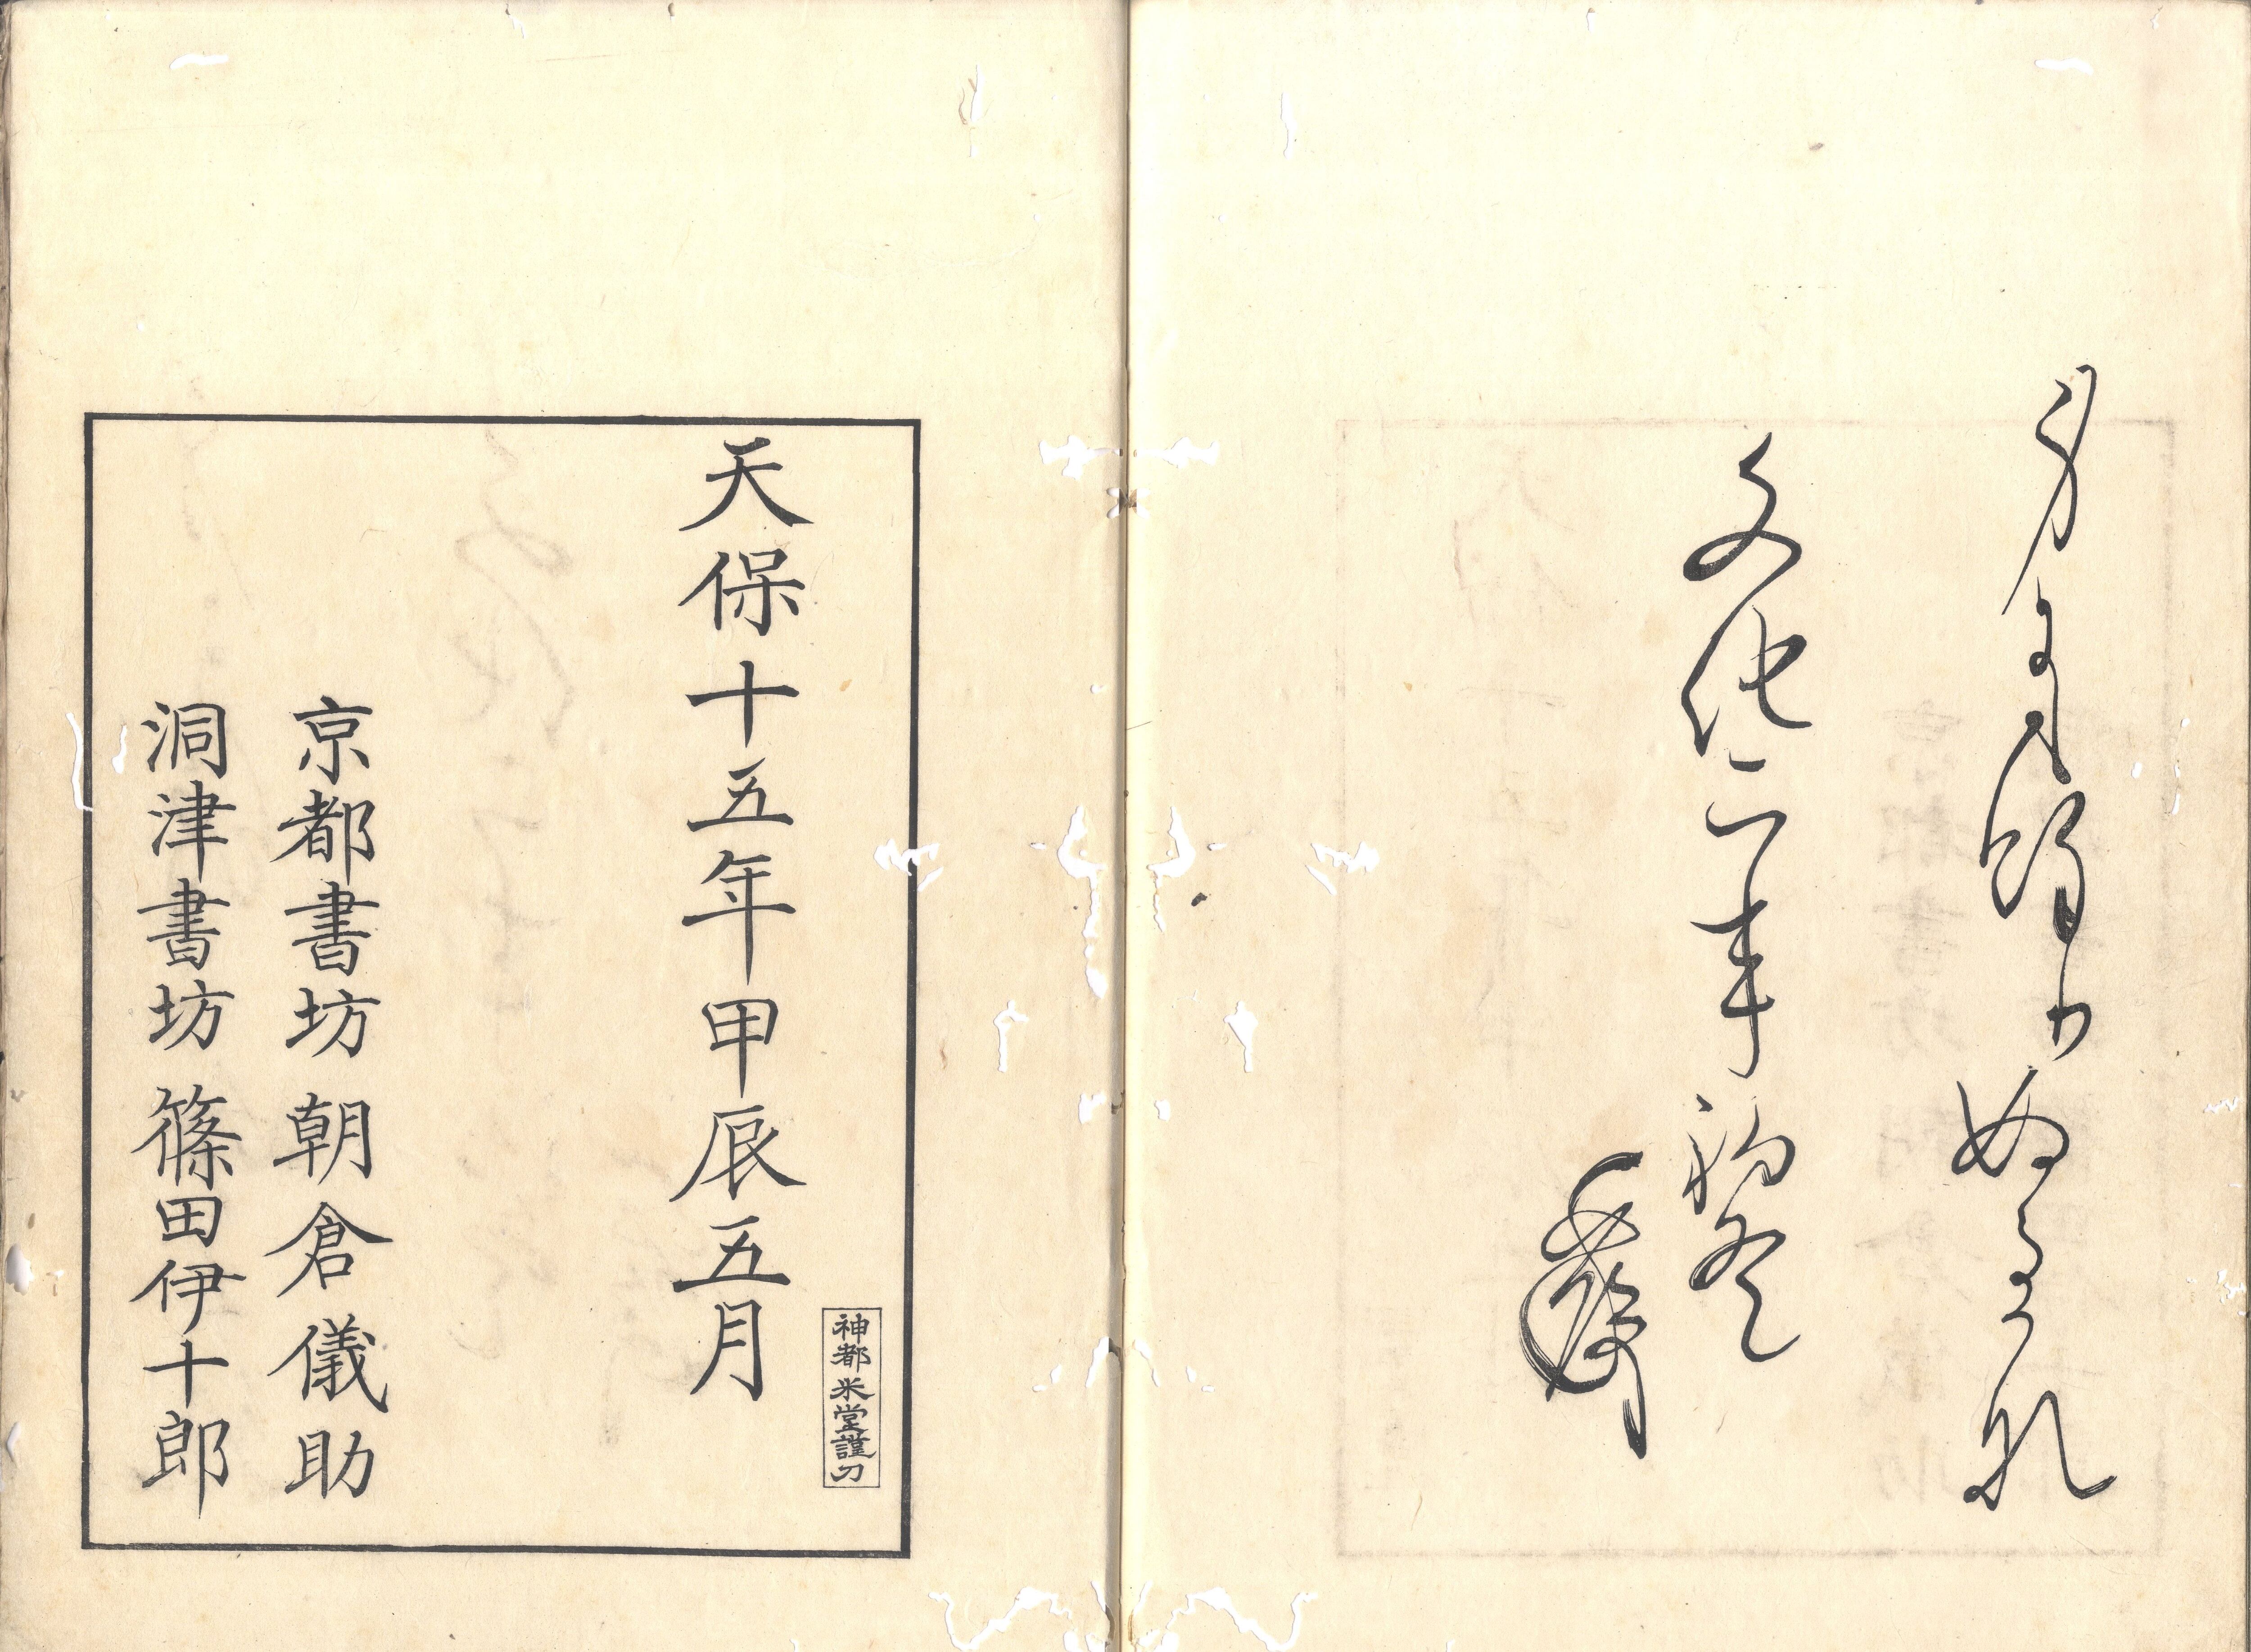 文化二年初冬
神都米堂謹刀
天保十五年甲辰五月
京都書坊 朝倉儀助
洞津書坊 篠田伊十郎